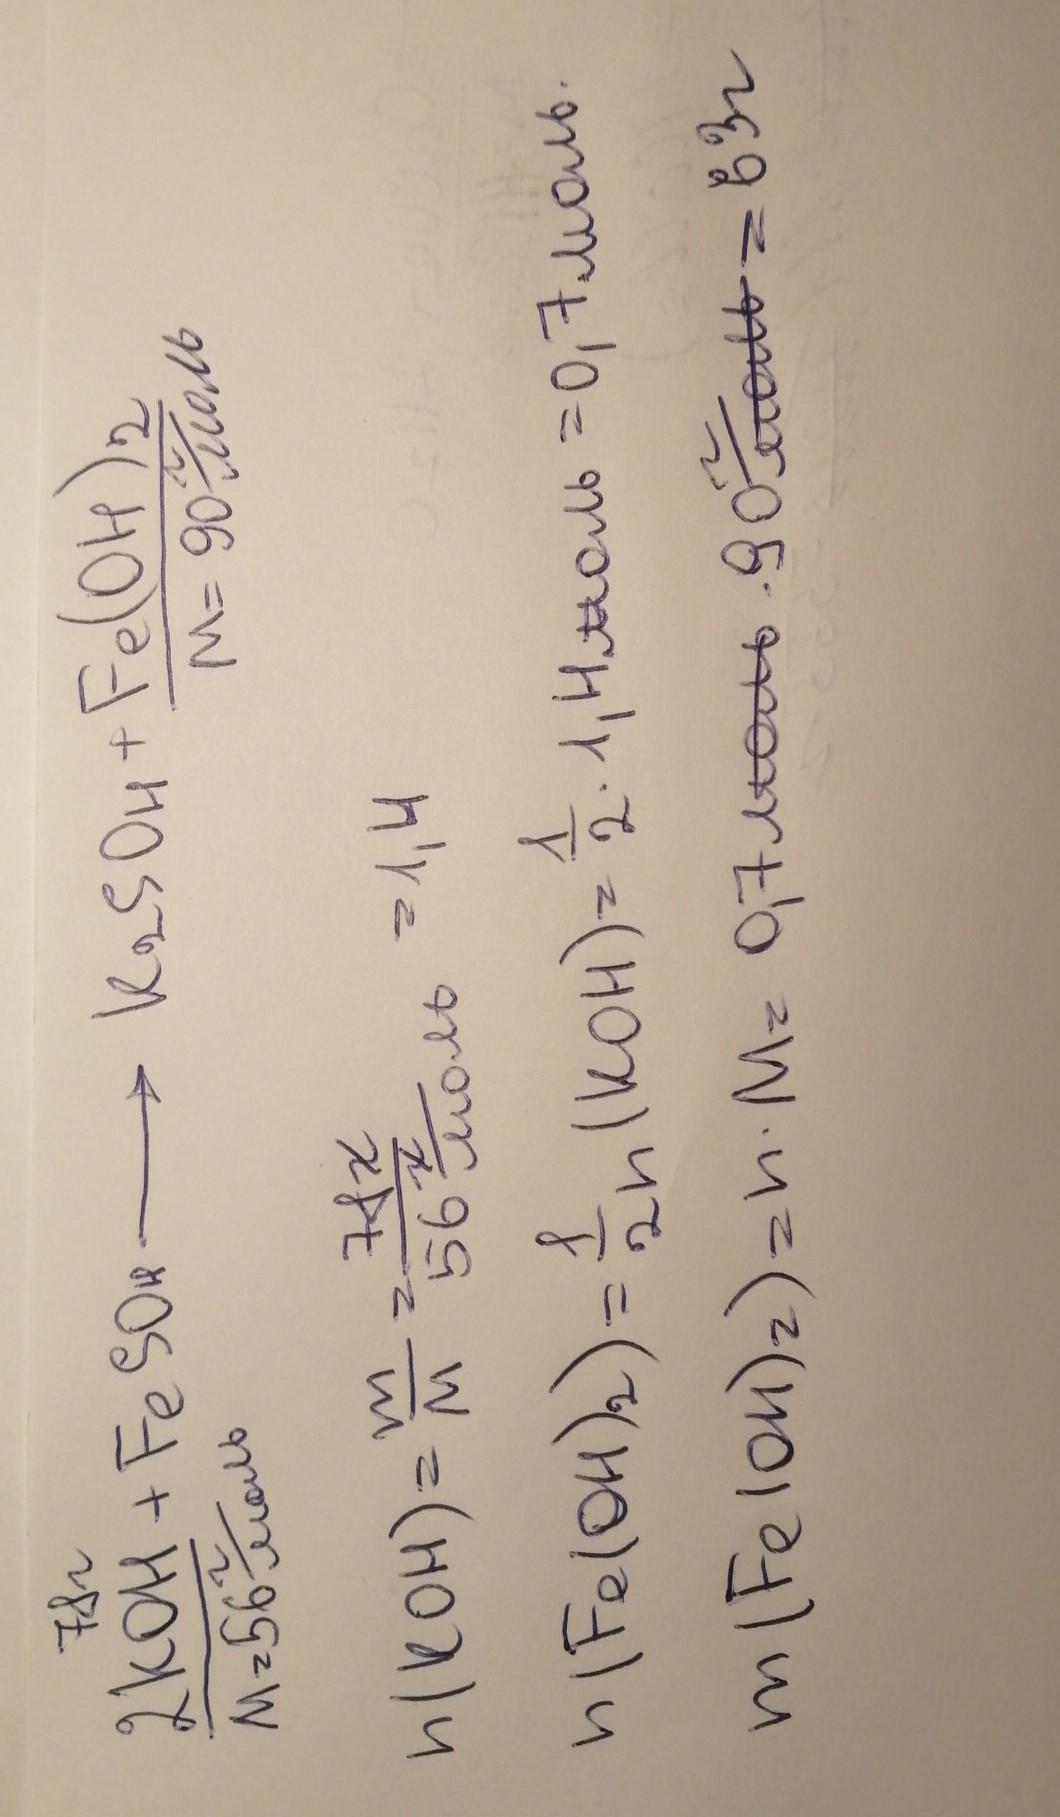 78г
2KOH + FeSO4 ⟶ K2SO4 + Fe(OH)2
M=56 г/моль M=90 г/моль
n(KOH) = m/M = 78г/56 г/моль = 1,4
n(Fe(OH)2) = 1/2 n(KOH) = 1/2 · 1,4 моль = 0,7 моль.
m(Fe(OH)2) = n · M = 0,7 моль · 90 г/моль = 63г